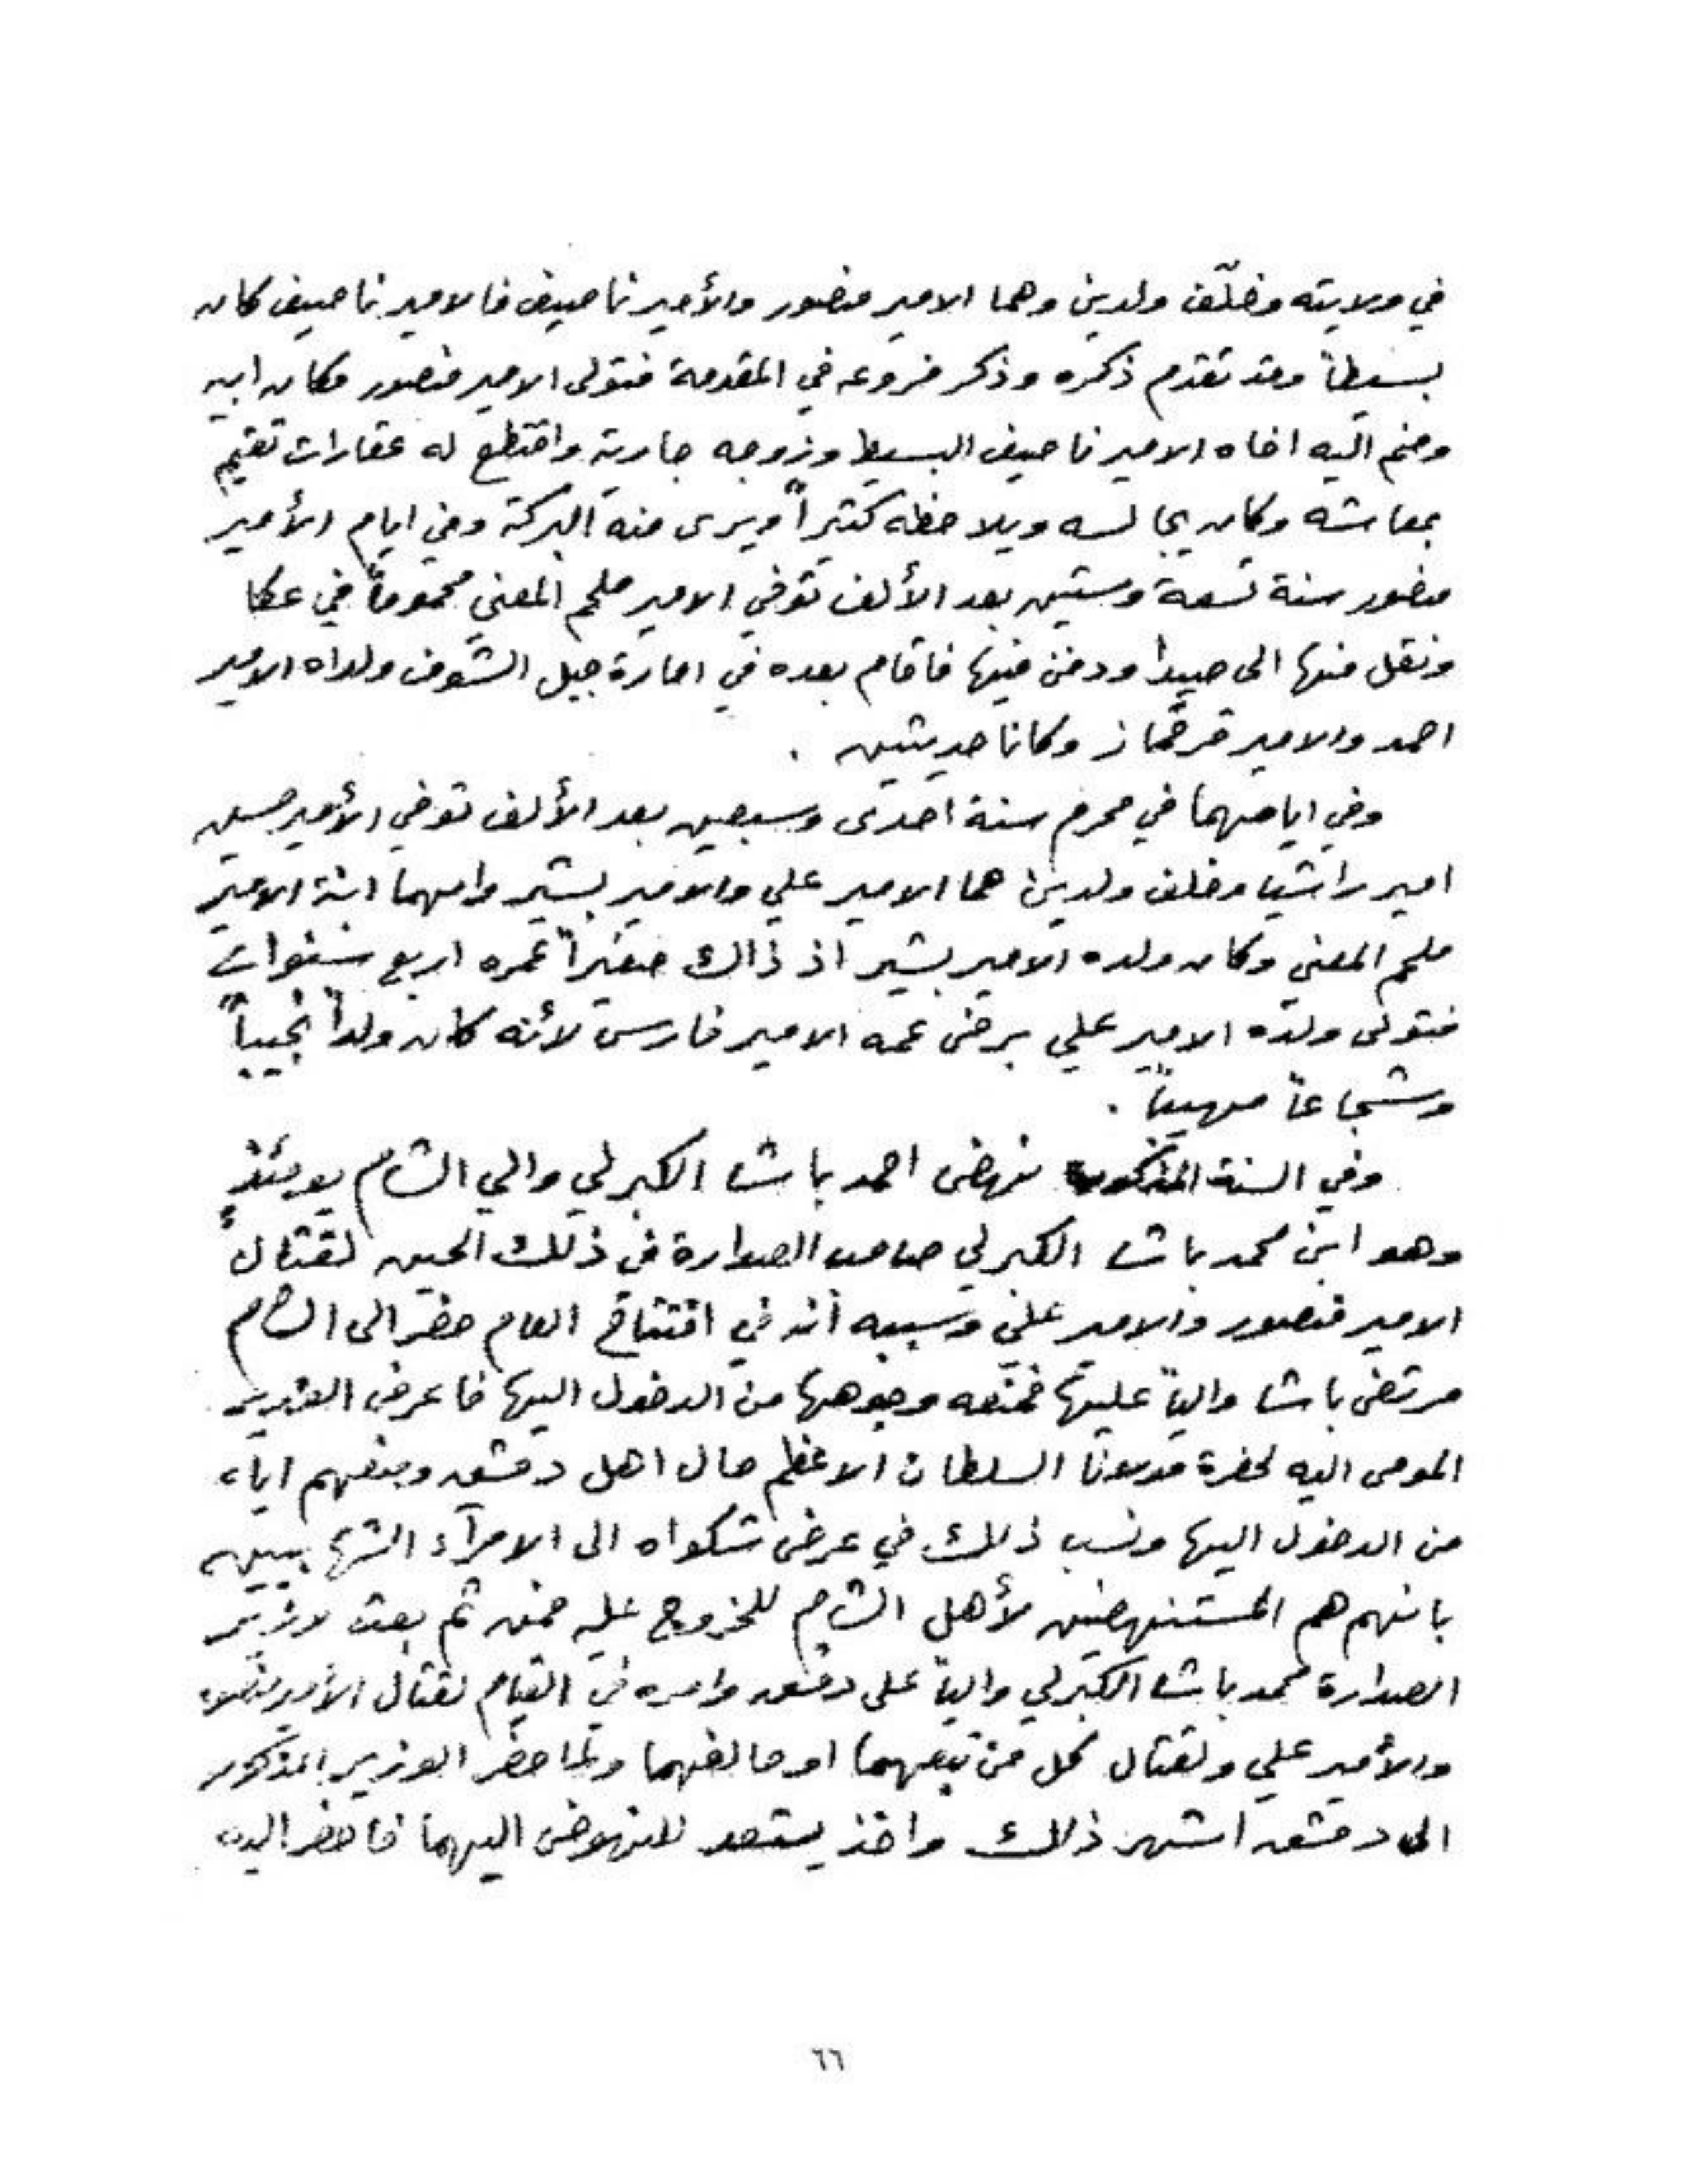 في ولايته وخلّف ولدين وهما الامير منصور والأمير ناصيف فالامير ناصيف كان
بسيطاً وقد تقدم ذكره وذكر فروعه في المقدمة فتولى الامير منصور مكان ابيه
وضم اليه اخاه الامير ناصيف البسيط وزوجه جارية واقتطع له عقارات تقيم
بمعاشه وكان يجالسه ويلاحظه كثيراً ويرى منه البركة وفي ايام الأمير
منصور سنة تسعة وستين بعد الألف توفي الامير ملحم المعني محموماً في عكا
ونقل منها الى صيدا ودفن فيها فاقام بعده في امارة جبل الشوف ولداه الامير
احمد والامير قرقماز وكانا حديثين .
وفي ايامهما في محرم سنة احدى وسبعين بعد الألف توفي الأمير حسين
امير راشيا وخلف ولدين هما الامير علي والامير بشير وامهما ابنة الامير
ملحم المعني وكان ولده الامير بشير اذ ذاك صغيراً عمره اربع سنوات
فتولى ولده الامير علي برضى عمه الامير فارس لأنه كان ولداً نجيباً
وشجاعاً مهيباً .
وفي السنة المذكورة نهض احمد باشا الكبرلي والي الشام يومئذٍ
وهو ابن محمد باشا الكبرلي صاحب الصدارة في ذلك الحين لقتال
الامير منصور والامير علي وسببه أنه في افتتاح العام حضر الى الشام
مرتضى باشا والياً عليها فمنعه وجوهها من الدخول اليها فاعرض الوزير
المومى اليه لحضرة مولانا السلطان الاعظم حال اهل دمشق ومنعهم اياه
من الدخول اليها ونسب ذلك في عرض شكواه الى الامرآء الشهابيين
بانهم هم المستنهضين لأهل الشام للخروج عليه فمن ثم بعث وزير
الصدارة محمد باشا الكبرلي والياً على دمشق وامره في القيام لقتال الأمير منصور
والأمير علي ولقتال كل من تبعهما او حالفهما ولما حضر الوزير المذكور
الى دمشق اشهر ذلك واخذ يستعد للنهوض اليهما فاحضر اليه
٦٦